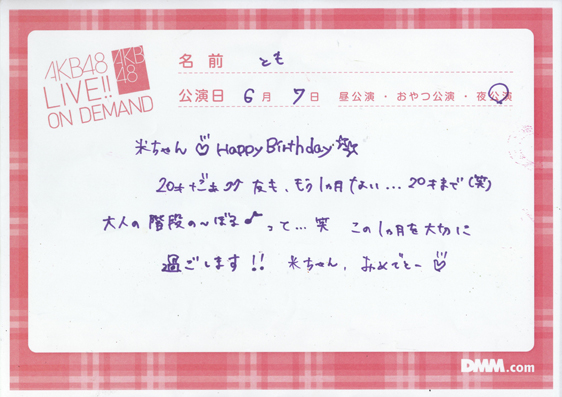 AKB48
LIVE!!
ON DEMAND
AKB
48
名前 とも
公演日 6月 7日 昼公演・おやつ公演・夜公演
米ちゃん♡ Happy Birthday☆☆
20才だぁ♪♪ 友も、もう1ヵ月ない…20才まで(笑)
大人の階段の〜ぼる♪って…笑 この1ヵ月を大切に
過ごします!! 米ちゃん、おめでとー♡
DMM.com